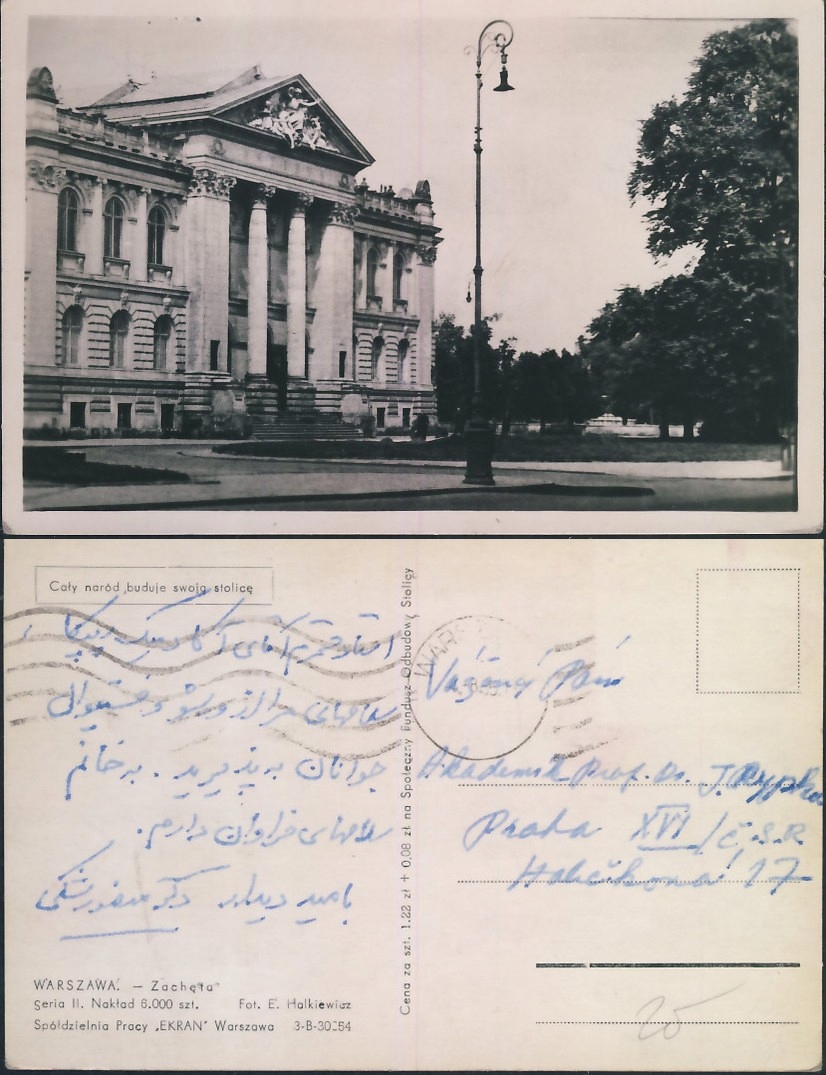 Cały naród buduje swoją stolicę
استاد محترم آقای آکادمیک ریپکا
سلامهای مرا از ورشو و فستیوال
جوانان بپذیرید. به خانم
سلامهای فراوان دارم.
بامید دیدار دکتر
Cena za szt. 1.22 zł + 0,08 zł na Społeczny Fundusz Odbudowy Stolicy
Vážený Pán
Akademik Prof. Dr. J. Rypka
Praha XVI / Č.S.R
17
WARSZAWA. — Zachęta
Seria II. Nakład 6.000 szt. Fot. E. Halkiewicz
Spółdzielnia Pracy „EKRAN" Warszawa 3-B-30254
20